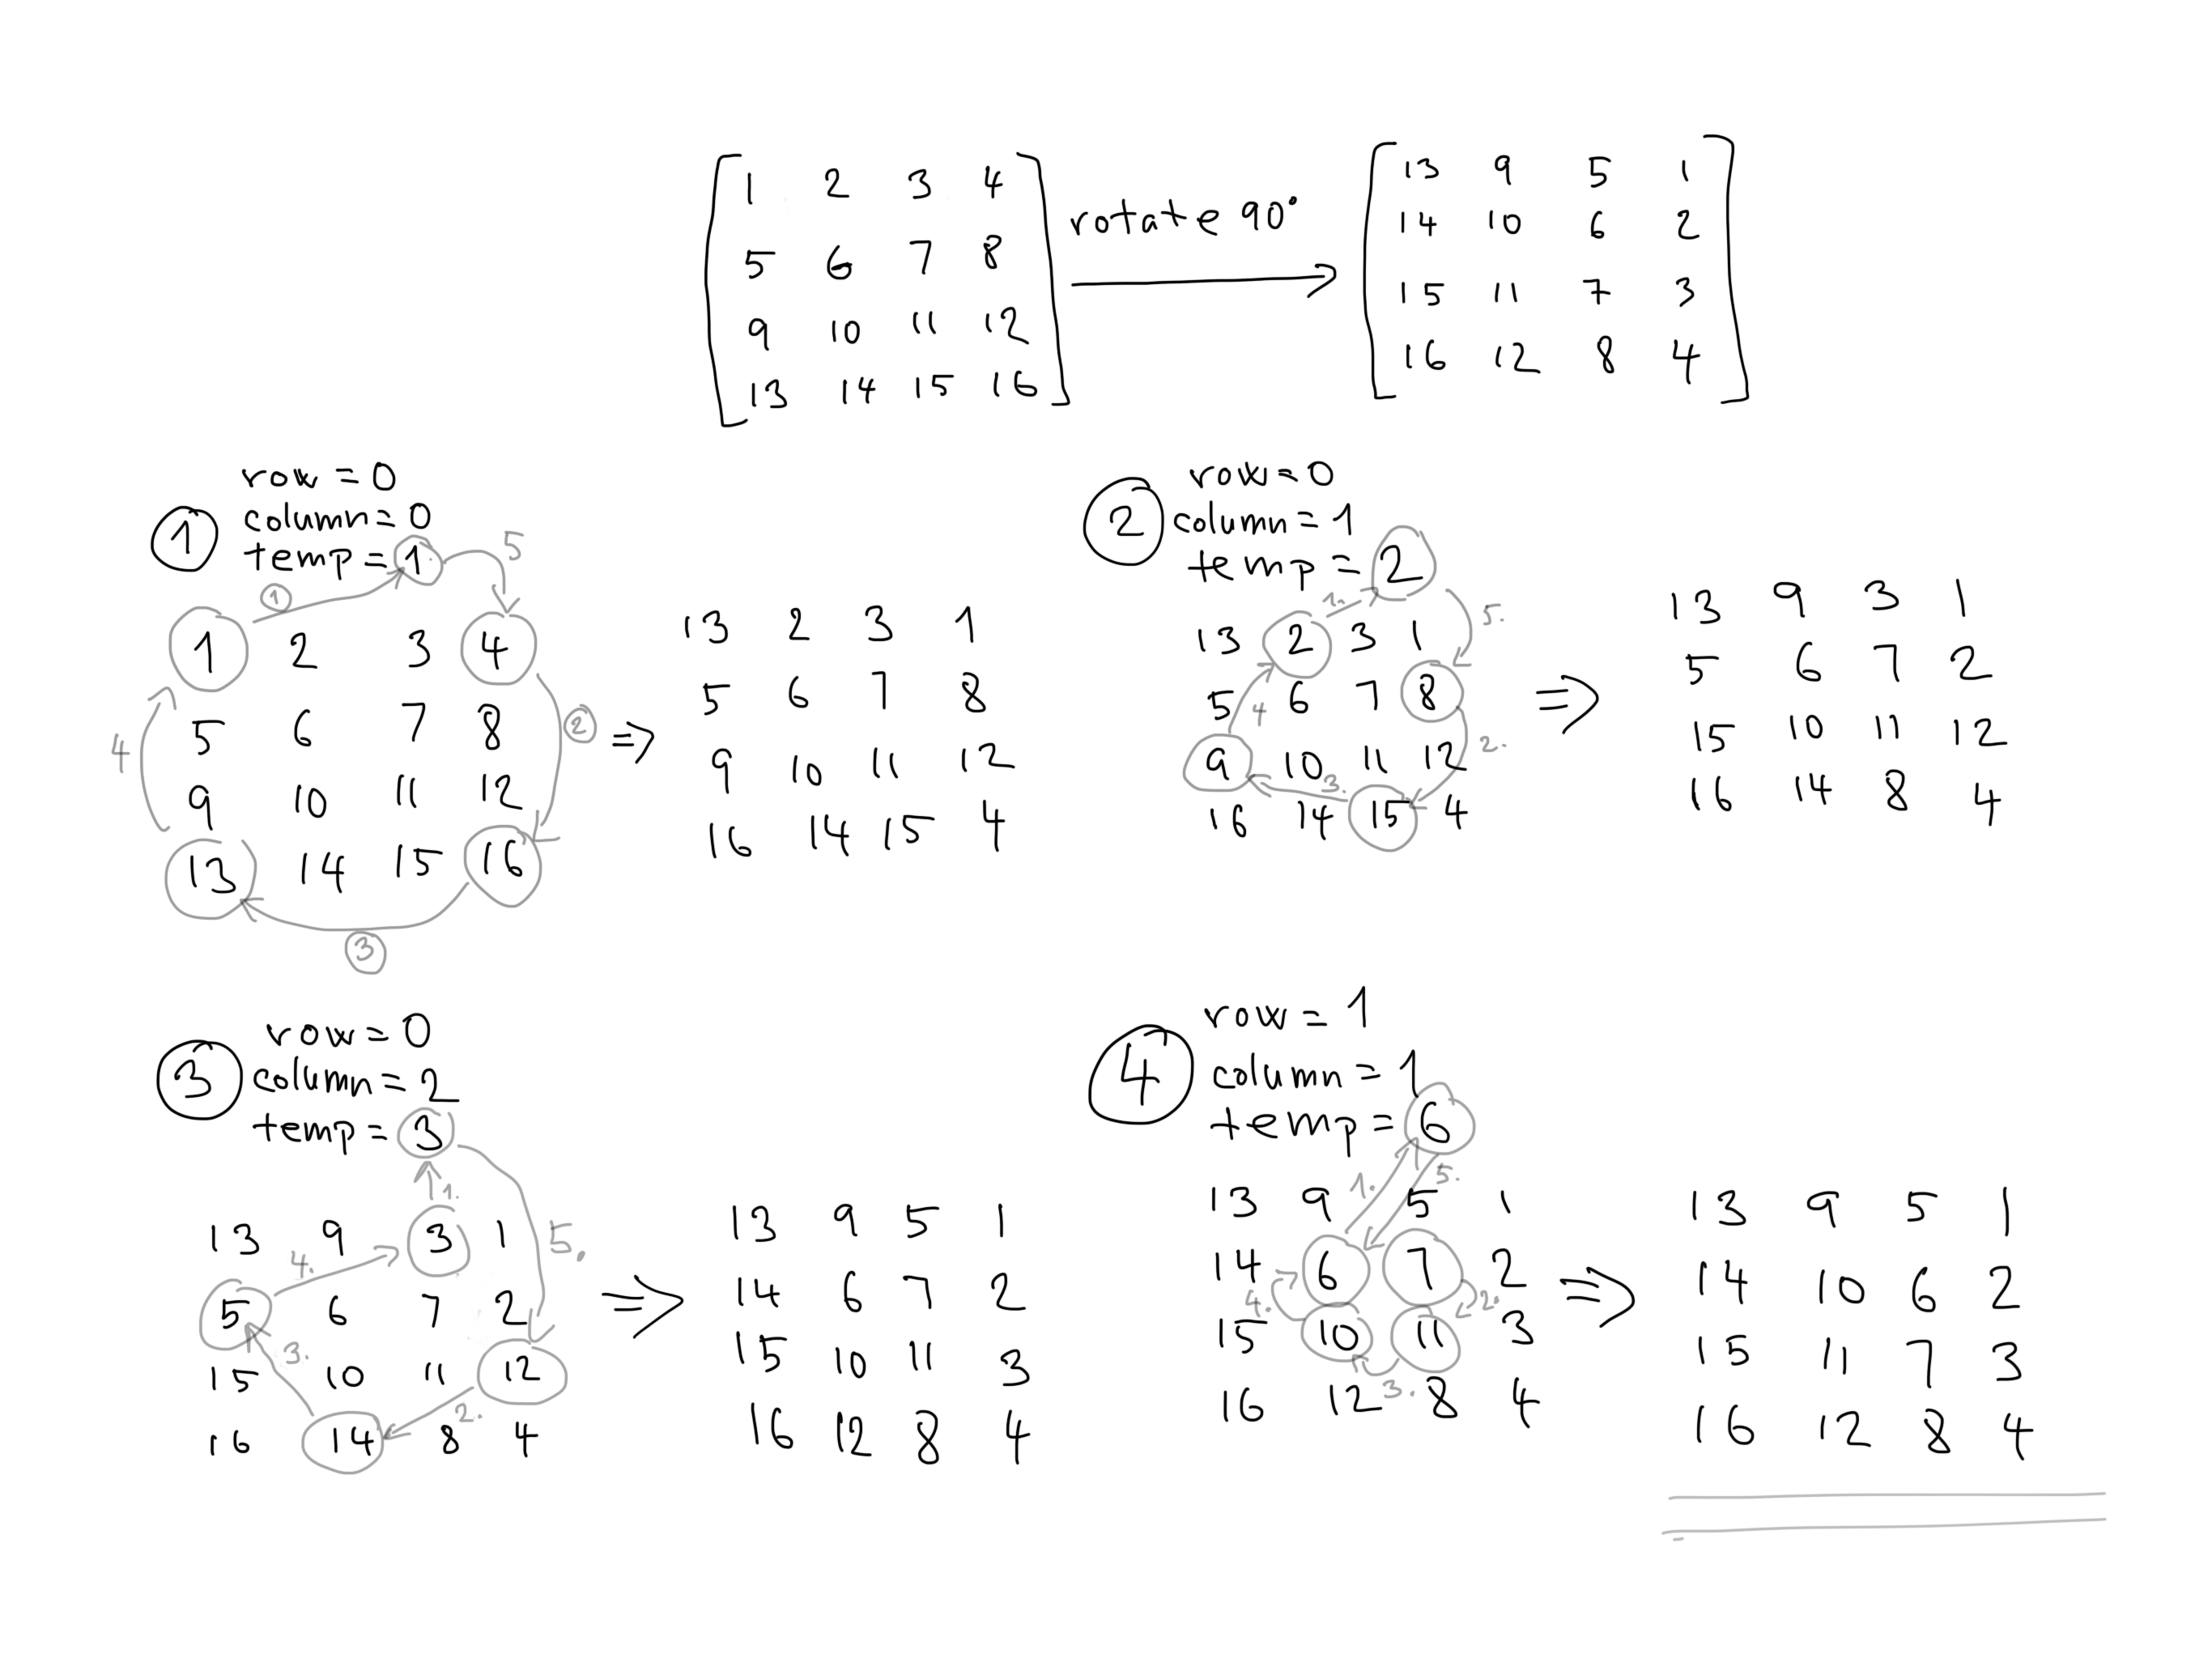 1 2 3 4
5 6 7 8
9 10 11 12
13 14 15 16
rotate 90°
13 9 5 1
14 10 6 2
15 11 7 3
16 12 8 4
1
row = 0
column = 0
temp = 1
1
5
1 2 3 4
5 6 7 8
9 10 11 12
13 14 15 16
2
3
4
=>
13 2 3 1
5 6 7 8
9 10 11 12
16 14 15 4
2
row = 0
column = 1
temp = 2
1.
5.
13 2 3 1
5 6 7 8
9 10 11 12
16 14 15 4
2.
3.
4
=>
13 9 3 1
5 6 7 2
15 10 11 12
16 14 8 4
3
row = 0
column = 2
temp = 3
1.
5.
13 9 3 1
5 6 7 2
15 10 11 12
16 14 8 4
2.
3.
4.
=>
13 9 5 1
14 6 7 2
15 10 11 3
16 12 8 4
4
row = 1
column = 1
temp = 6
1.
5.
13 9 5 1
14 6 7 2
15 10 11 3
16 12 8 4
2.
3.
4.
=>
13 9 5 1
14 10 6 2
15 11 7 3
16 12 8 4